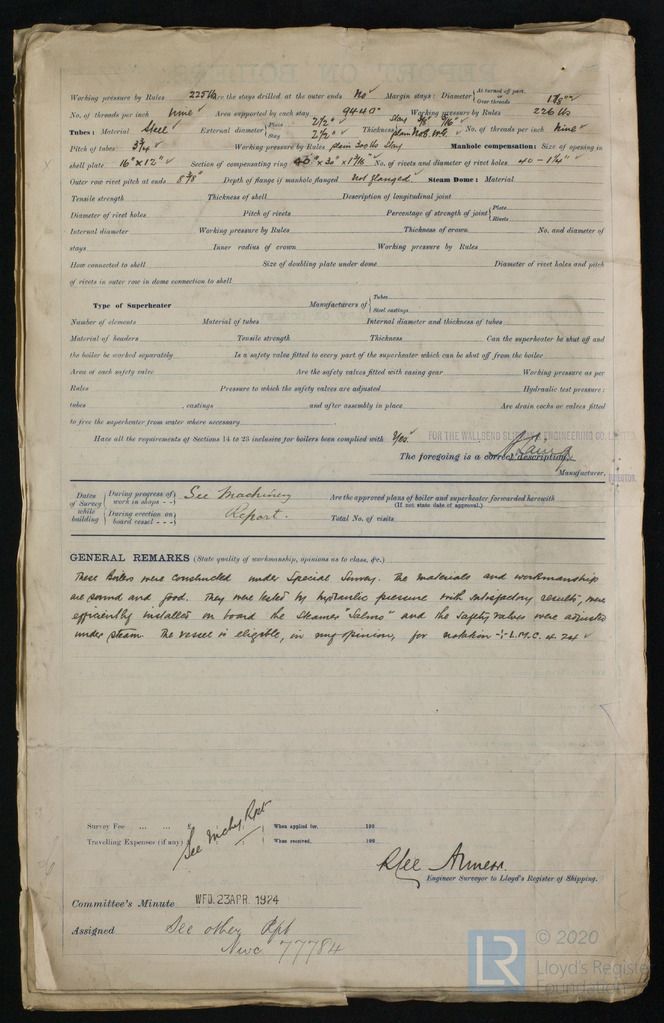 Working pressure by Rules 225 lbs Are the stays drilled at the outer ends No Margin stays: Diameter { At turned off part, or Over threads 1 7/8"
No. of threads per inch nine Area supported by each stay 94.40" Working pressure by Rules 226 lbs
Tubes: Material Steel External diameter { Plain 2 1/2" Stay 2 1/2" Thickness { No. of threads per inch nine
Pitch of tubes 3 3/4 Working pressure by Rules plain 300 lbs Stay Manhole compensation: Size of opening in
shell plate 16" x 12" Section of compensating ring 40" x 30" x 1 7/16" No. of rivets and diameter of rivet holes 40 - 1 1/4"
Outer row rivet pitch at ends 8 3/8" Depth of flange if manhole flanged Not flanged. Steam Dome: Material
Tensile strength Thickness of shell Description of longitudinal joint
Diameter of rivet holes Pitch of rivets Percentage of strength of joint { Plate Rivets
Internal diameter Working pressure by Rules Thickness of crown No. and diameter of
stays Inner radius of crown Working pressure by Rules
How connected to shell Size of doubling plate under dome Diameter of rivet holes and pitch
of rivets in outer row in dome connection to shell
Type of Superheater Manufacturers of { Tubes Steel castings
Number of elements Material of tubes Internal diameter and thickness of tubes
Material of headers Tensile strength Thickness Can the superheater be shut off and
the boiler be worked separately Is a safety valve fitted to every part of the superheater which can be shut off from the boiler
Area of each safety valve Are the safety valves fitted with easing gear Working pressure as per
Rules Pressure to which the safety valves are adjusted Hydraulic test pressure:
tubes , castings and after assembly in place Are drain cocks or valves fitted
to free the superheater from water where necessary
Have all the requirements of Sections 14 to 25 inclusive for boilers been complied with Yes.
FOR THE WALLSEND SLIPWAY & ENGINEERING CO. LIMITED
The foregoing is a correct description,
Manufacturer.
DIRECTOR.
Dates of Survey while building { During progress of work in shops - - During erection on board vessel - - - } See Machinery Report.
Are the approved plans of boiler and superheater forwarded herewith
(If not state date of approval.)
Total No. of visits
GENERAL REMARKS (State quality of workmanship, opinions as to class, &c.)
These Boilers were constructed under Special Survey. The materials and workmanship
are sound and good. They were tested by hydraulic pressure with satisfactory results, were
efficiently installed on board the Steamer "Salmo" and the safety valves were adjusted
under steam. The vessel is eligible, in my opinion, for notation + L.M.C. 4.24
Survey Fee ... ... £ When applied for, 192
Travelling Expenses (if any) £ When received, 192
See Mchy Rpt
Engineer Surveyor to Lloyd's Register of Shipping.
Committee's Minute WED. 23 APR. 1924
Assigned See other Rpt
Nwc 77784
LR © 2020
Lloyd's Register
Foundation